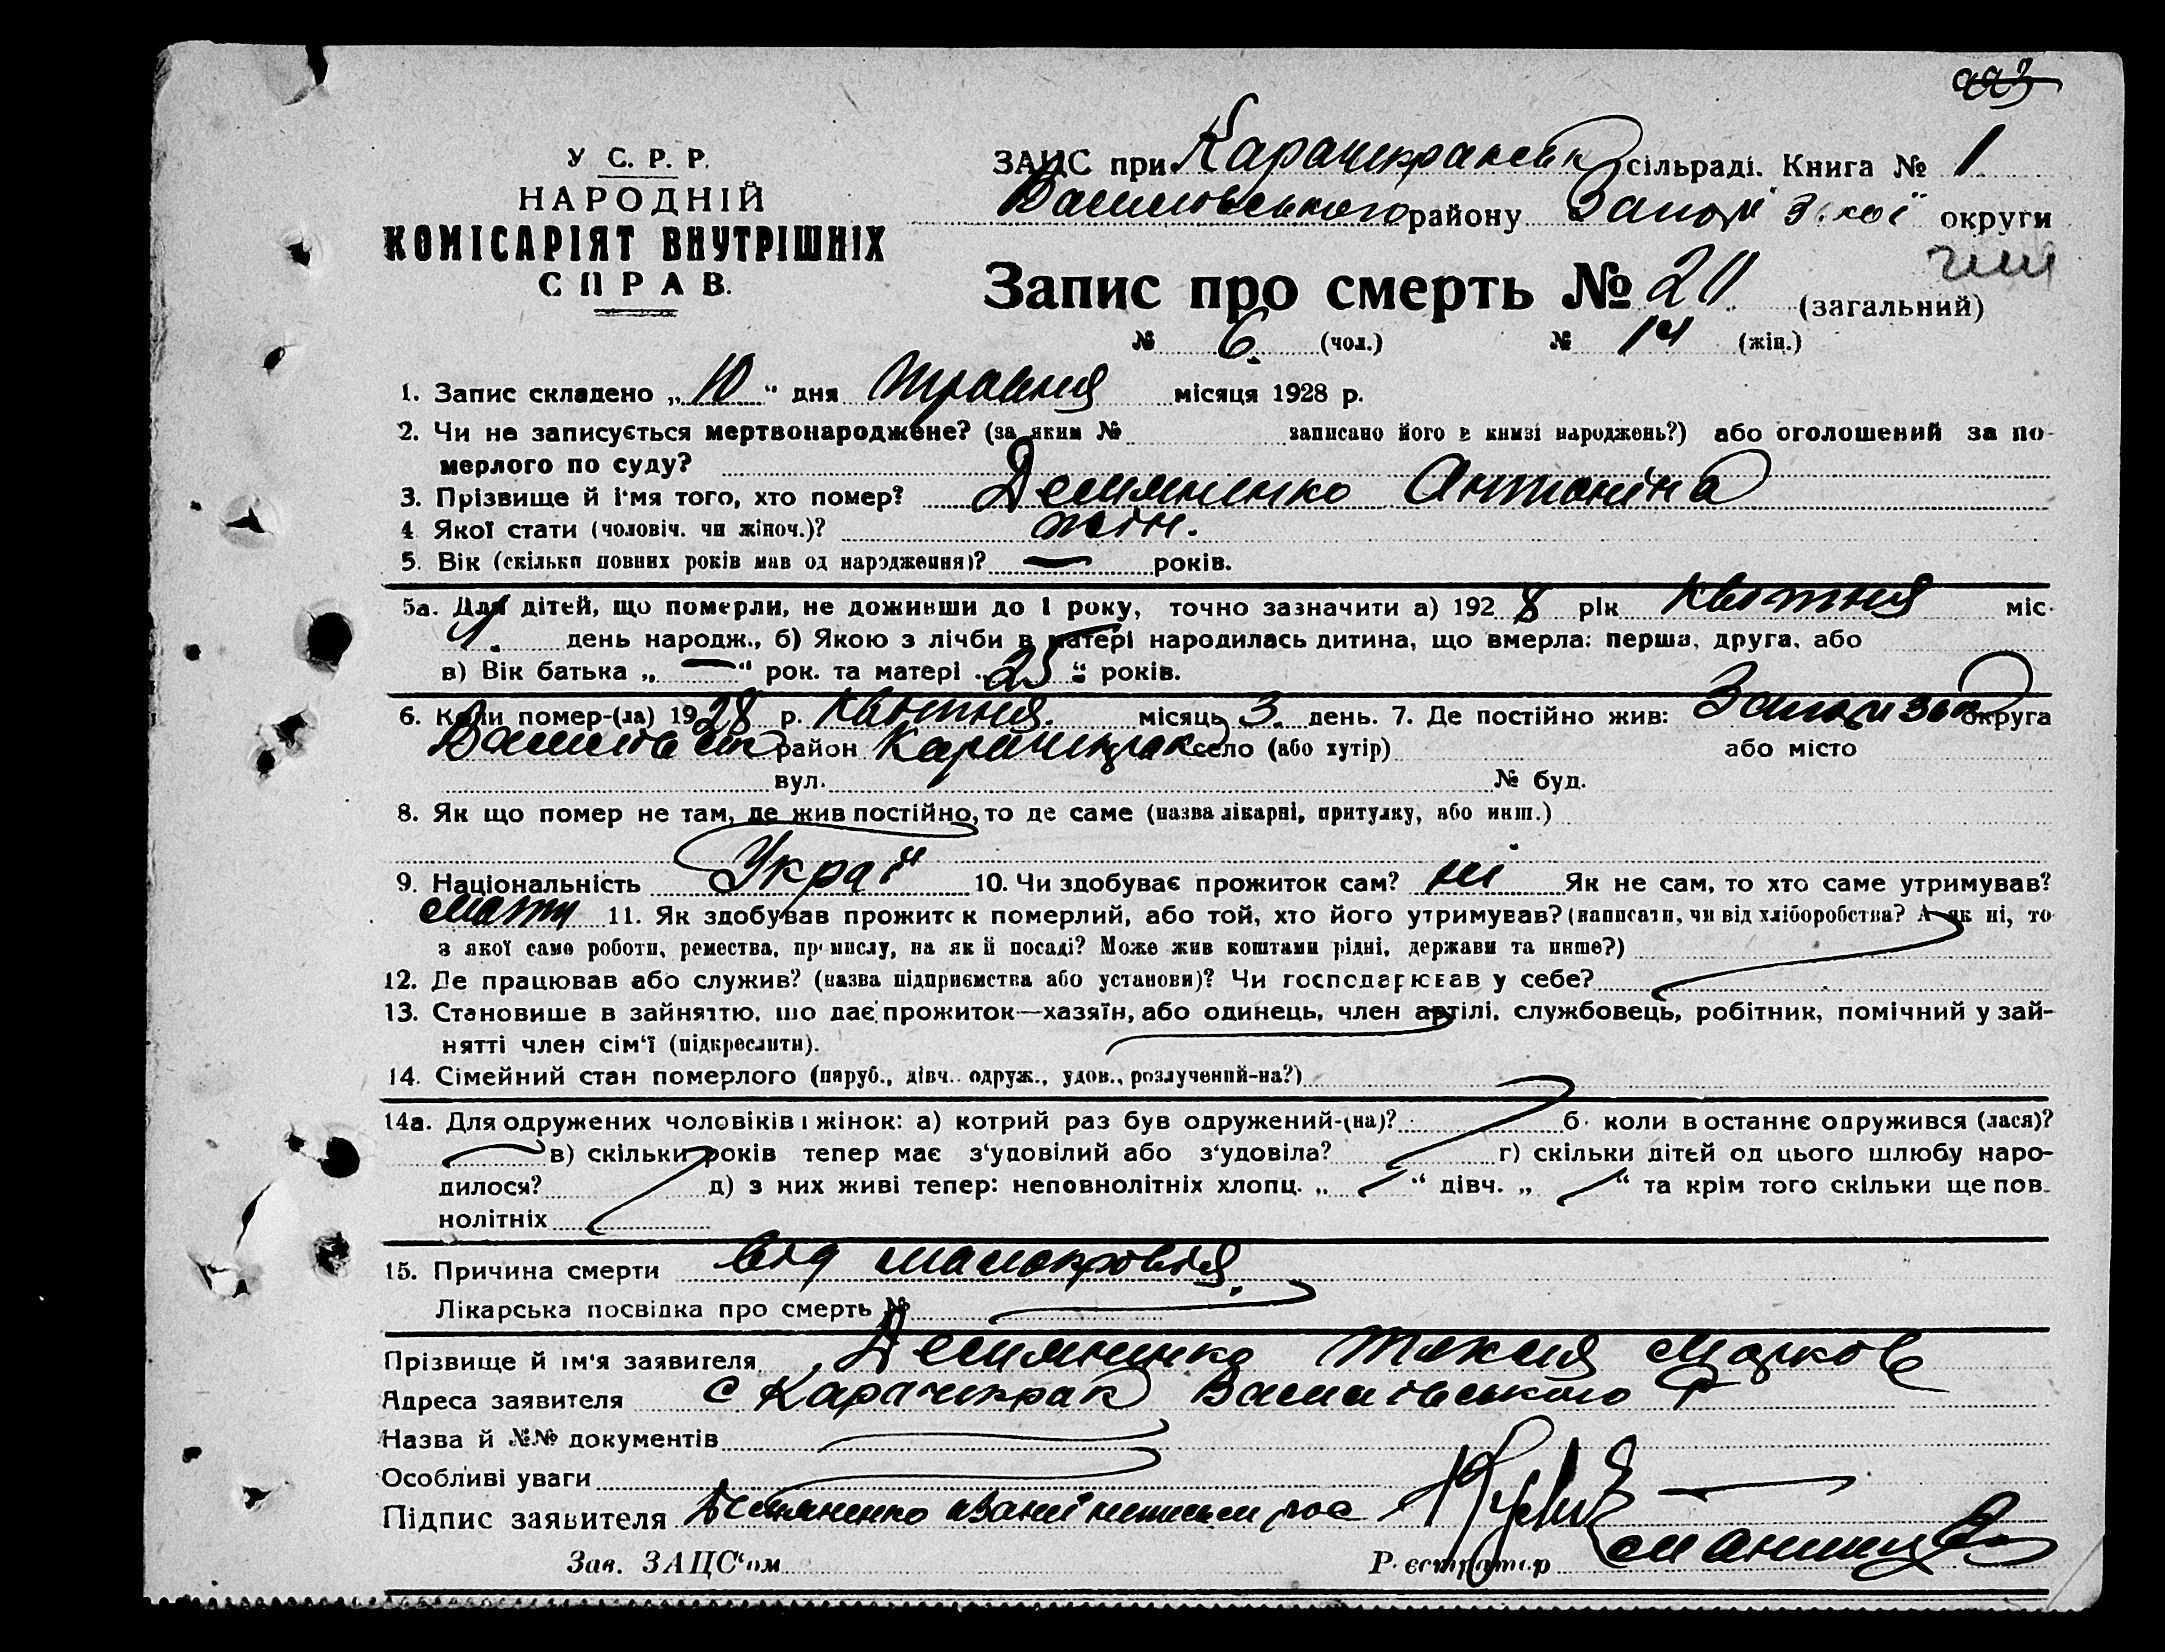 У С. Р. Р.
НАРОДНІЙ
КОМІСАРІЯТ ВНУТРІШНІХ
СПРАВ.
ЗАЦС при Карачекракськ сільраді. Книга № 1
Василівського району Запорізької округи
Запис про смерть № 20 (загальний)
№ 6 (чол.) № 14 (жін.)
1. Запис складено „10“ дня травня місяця 1928 р.
2. Чи не записується мертвонароджене? (за яким № записано його в книзі народжень?) або оголошений за по-
мерлого по суду?
3. Прізвище й ім'я того, хто помер? Антоніна
4 Якої стати (чоловіч. чи жіноч.)? жін.
5. Вік (скільки повних років мав од народження)? — років.
5а. Для дітей, що померли, не доживши до 1 року, точно зазначити а) 1928 рік Квітня міс.
1. день народж., б) Якою з лічби в матері народилась дитина, що вмерла: перша, друга, або
в) Вік батька „—“ рок. та матері „25“ років.
6. Коли помер-(ла) 1928 р. Квітня місяць 3 день. 7. Де постійно жив: округа
район Карачекрак село (або хутір) або місто
вул. № буд.
8. Як що помер не там, де жив постійно, то де саме (назва лікарні, притулку, або инш.)
9. Національність Украї 10. Чи здобуває прожиток сам? ні Як не сам, то хто саме утримував?
мати 11. Як здобував прожиток померлий, або той, хто його утримував? (написати, чи від хліборобства? А як ні, то
з якої саме роботи, ремества, промислу, на якій посаді? Може жив коштами рідні, держави та инше?)
12. Де працював або служив? (назва підприємства або установи)? Чи господарював у себе?
13. Становище в зайняттю, що дає прожиток—хазяїн, або одинець, член артілі, службовець, робітник, помічний у зай-
нятті член сім'ї (підкреслити).
14. Сімейний стан померлого (паруб., дівч. одруж., удов., розлучений-на?)
14а. Для одружених чоловіків і жінок: а) котрий раз був одружений-(на)? б. коли в останнє одружився (лася)?
в) скільки років тепер має з'удовілий або з'удовіла? г) скільки дітей од цього шлюбу наро-
дилося? д) з них живі тепер: неповнолітніх хлопц. „ “ дівч. „ “ та крім того скільки ще пов-
нолітніх
15. Причина смерти від малокровія.
Лікарська посвідка про смерть №
Прізвище й ім'я заявителя
Адреса заявителя с Карачекрак Василівського р
Назва й №№ документів
Особливі уваги
Підпис заявителя
Зав. ЗАЦС'ом Реєстратор